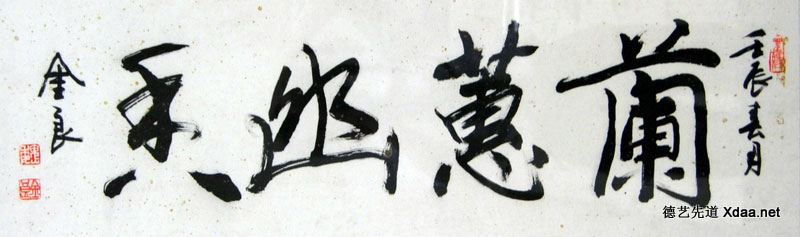 壬辰春月
蘭蕙幽香
金良
德艺先道 Xdaa.net